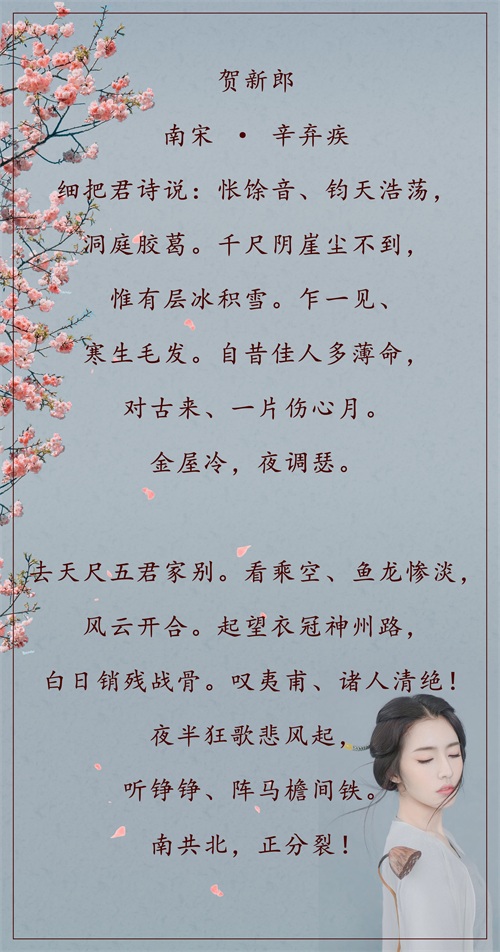 贺新郎
南宋 · 辛弃疾
细把君诗说：怅馀音、钧天浩荡，
洞庭胶葛。千尺阴崖尘不到，
惟有层冰积雪。乍一见、
寒生毛发。自昔佳人多薄命，
对古来、一片伤心月。
金屋冷，夜调瑟。
去天尺五君家别。看乘空、鱼龙惨淡，
风云开合。起望衣冠神州路，
白日销残战骨。叹夷甫、诸人清绝！
夜半狂歌悲风起，
听铮铮、阵马檐间铁。
南共北，正分裂！